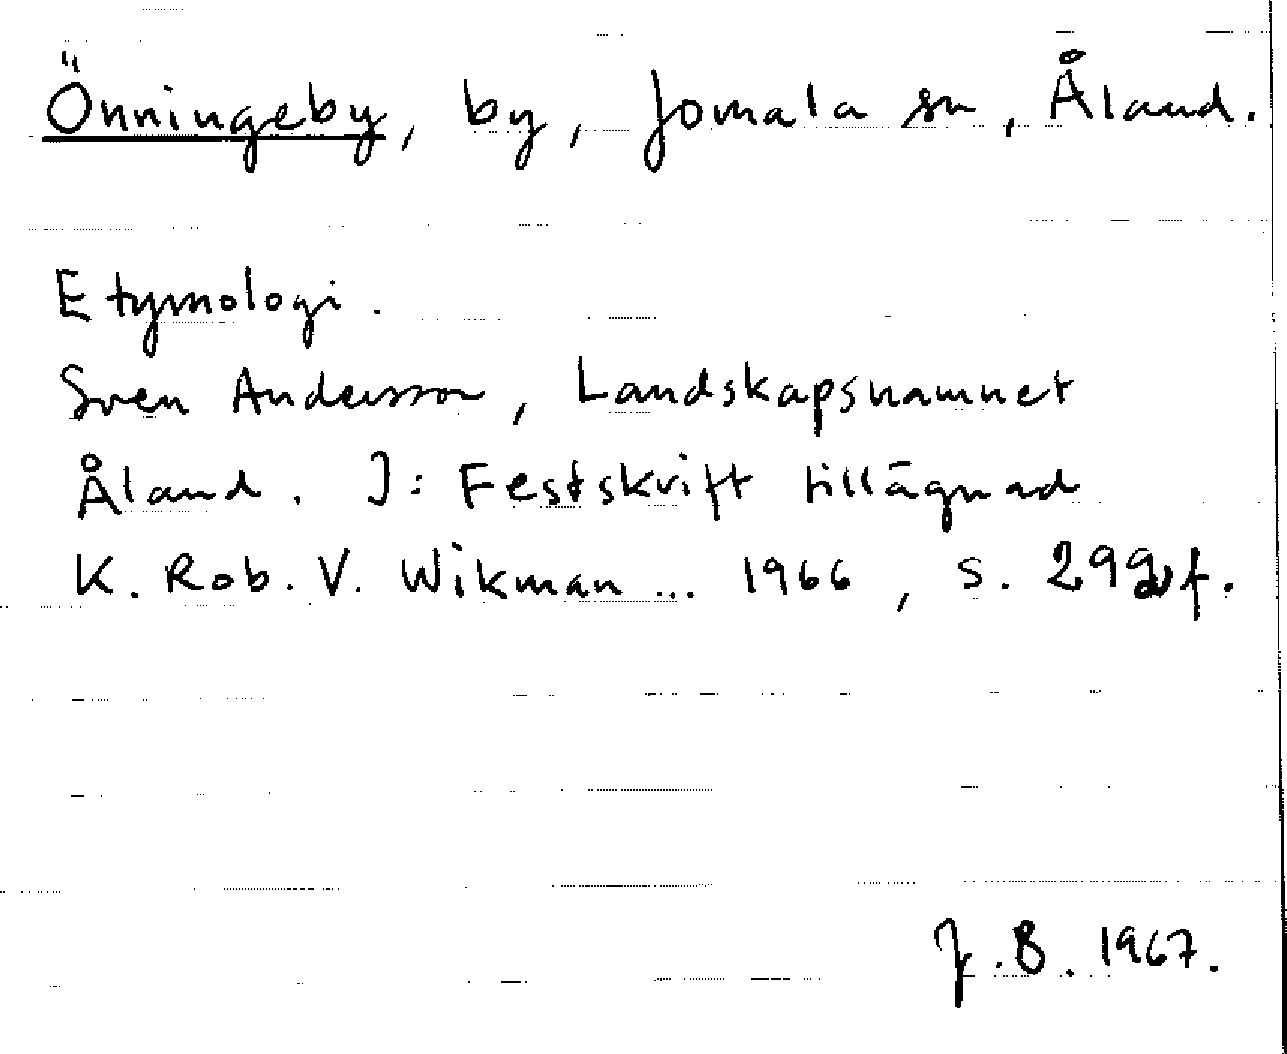 Önningeby, by, Jomala sn, Åland.
Etymologi.
Sven Andersson, Landskapsnamnet
Åland. I: Festskrift tillägnad
K. Rob. V. Wikman ... 1966, s. 299 f.
J. B. 1967.